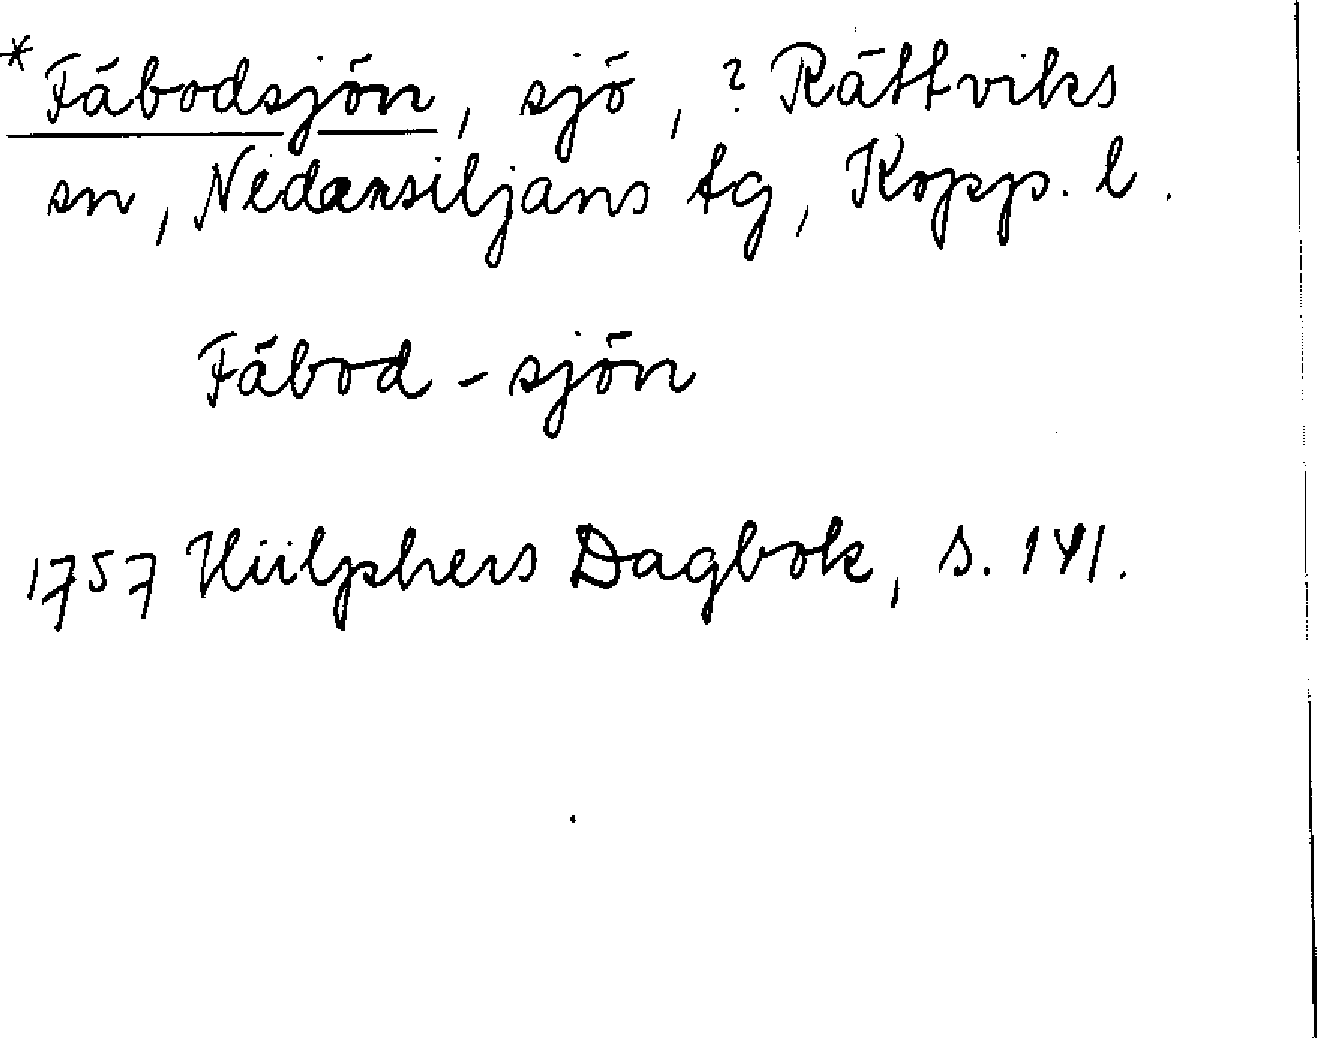 *Fäbodsjön, sjö, ? Rättviks
sn, Nedansiljans tg, Kopp. l.
Fäbod - sjön
1757 Hülphers Dagbok, s. 141.